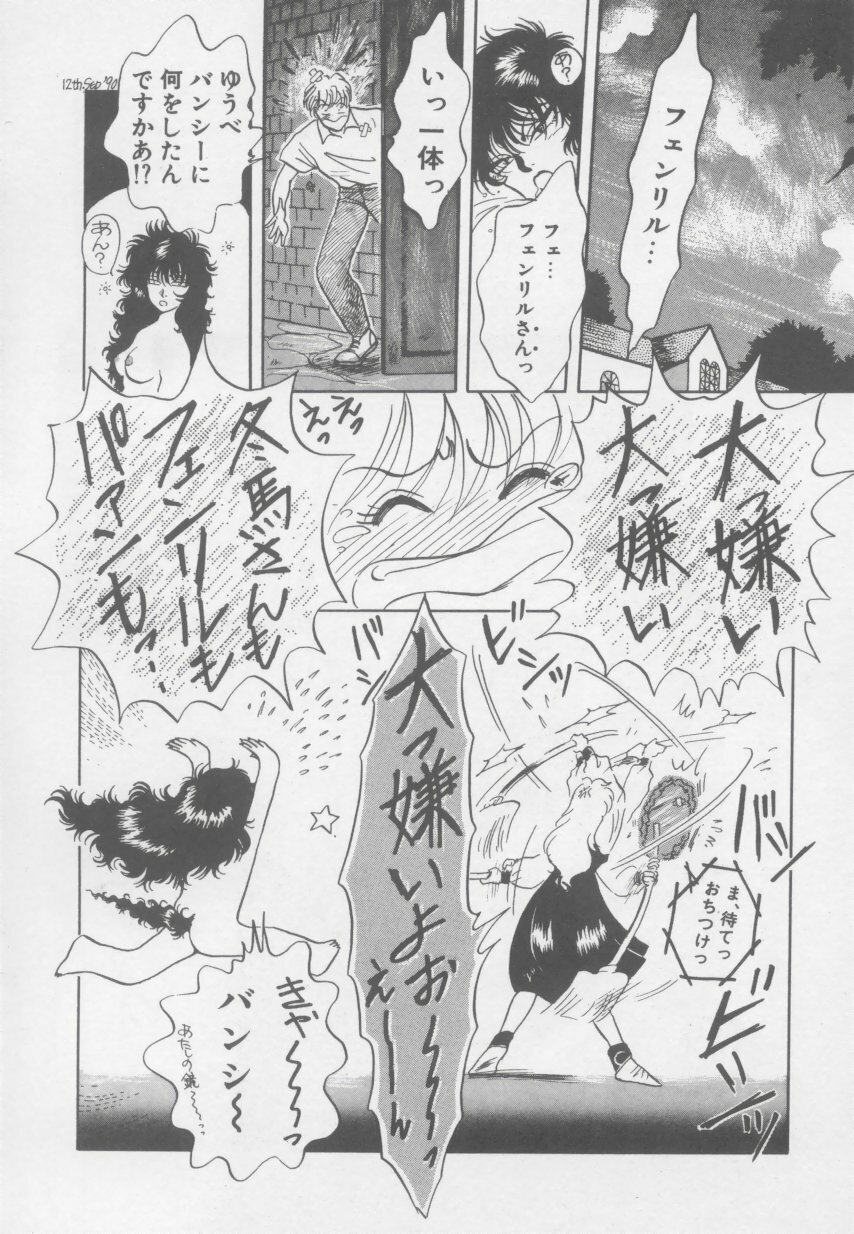 フェンリル…
あ?
フェ…
フェンリルさんっ
いっ一体っ
12th.Sep '90
ゆうべ
バンシーに
何をしたん
ですかあ!?
あん?
大っ嫌い
大っ嫌い
えっ
えっ
冬馬さんも
フェンリルも
パァンも…
ビシッ
バシ
大っ嫌いよお〜〜〜っ
え〜〜ん
バン
ま、待てっ
おちつけっ
ビシッ
きゃ〜〜〜っ
バンシ〜
あたしの鏡〜〜っっ